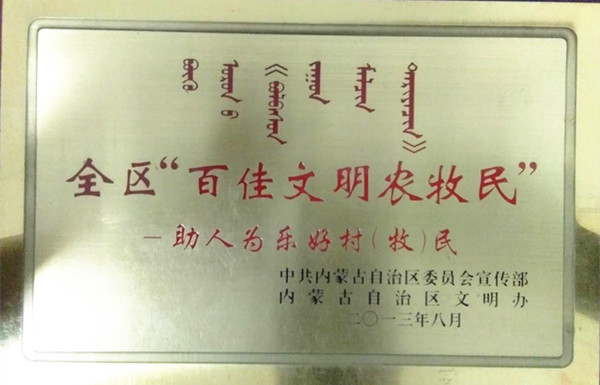 全区“百佳文明农牧民”
—助人为乐好村(牧)民
中共内蒙古自治区委员会宣传部
内蒙古自治区文明办
二〇一三年八月